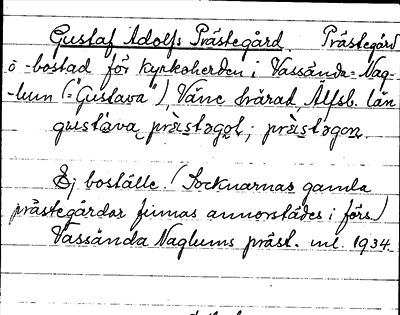 Gustaf Adolfs Prästegård. Prästegård
o -bostad för kyrkoherden i Vassända-Nag-
-lum (="Gustava"),Väne härad, Älfsb. län
gustava prästogol; prästogon.
Ej boställe. (Socknarnas gamla
prästegårdar finnas annorstädes i förs.)
Vassända Naglums präst. ml. 1934.